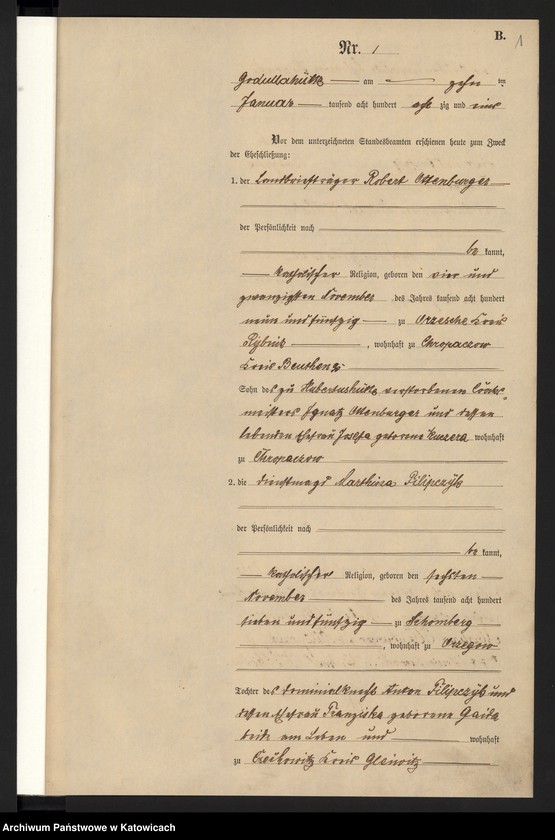 B.
1
Nr. 1
Godullahütte am zehn ten
Januar tausend acht hundert acht zig und eins
Vor dem unterzeichneten Standesbeamten erschienen heute zum Zweck
der Eheschließung:
1. der Landbriefträger Robert Ottenburger
der Persönlichkeit nach
be kannt,
katholischer Religion, geboren den vier und
zwanzigsten November des Jahres tausend acht hundert
neun und fünfzig zu Orzesche Kreis
Rybnik , wohnhaft zu Chropaczow
Kreis Beuthen
Sohn des zu Hubertushütte verstorbenen
meisters Ignatz Ottenburger und dessen
lebenden Ehefrau Josefa geborene Kuczera wohnhaft
zu Chropaczow
2. die Dienstmagd Marthina Filipczyk
der Persönlichkeit nach
be kannt,
katholischer Religion, geboren den sechsten
November des Jahres tausend acht hundert
sieben und fünfzig zu Schomberg
, wohnhaft zu Orzegow
Tochter des Dominialknecht Anton Filipczyk und
dessen Ehefrau Franziska geborene Gaida
beide am Leben und wohnhaft
zu Kreis Gleiwitz
Archiwum Państwowe w Katowicach